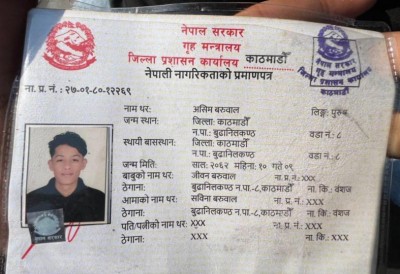 नेपाल सरकार
गृह मन्त्रालय
जिल्ला प्रशासन कार्यालय काठमाडौँ
नेपाली नागरिकताको प्रमाणपत्र
नेपाल सरकार
गृह मन्त्रालय
जिल्ला प्रशासन कार्यालय
काठमाडौँ
ना. प्र. नं. : २७-०१-८०-१२२६९
नाम थर: असिम बरुवाल लिङ्ग: पुरुष
जन्म स्थान: जिल्ला: काठमाडौँ
न.पा.: बुढानिलकण्ठ वडा नं.: ८
स्थायी बासस्थान: जिल्ला: काठमाडौँ
न.पा.: बुढानिलकण्ठ वडा नं.: ८
जन्म मिति: साल: २०६२ महिना: १० गते ०९
बाबुको नाम थर: जीवन बरुवाल ना.प्र.नं.: xxx
ठेगाना: बुढानिलकण्ठ न.पा.-८,काठमाडौँ ना. कि: वंशज
आमाको नाम थर: सविना बरुवाल ना.प्र.नं.: xxx
ठेगाना: बुढानिलकण्ठ न.पा.-८,काठमाडौँ ना. कि: वंशज
पति/पत्नीको नाम थर: xxx ना.प्र.नं.: xxx
ठेगाना: xxx ना. कि: xxx
नेपाल सरकार